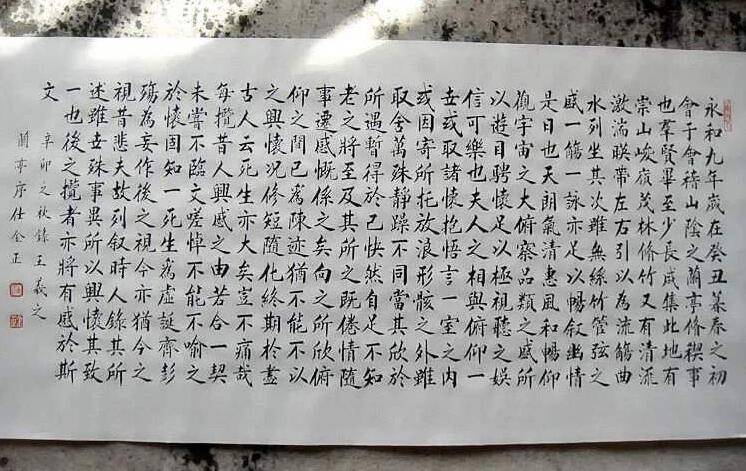 永和九年歲在癸丑暮春之初
會于會稽山陰之蘭亭修稧事
也羣賢畢至少長咸集此地有
崇山峻嶺茂林脩竹又有清流
激湍暎帶左右引以為流觴曲
水列坐其次雖無絲竹管弦之
盛一觴一詠亦足以暢叙幽情
是日也天朗氣清惠風和暢仰
觀宇宙之大俯察品類之盛所
以遊目騁懷足以極視聽之娛
信可樂也夫人之相與俯仰一
世或取諸懷抱悟言一室之內
或因寄所托放浪形骸之外雖
取舍萬殊靜躁不同當其欣於
所遇暫得於己快然自足不知
老之將至及其所之既倦情隨
事遷感慨係之矣向之所欣俯
仰之閒已為陳迹猶不能不以
之興懷況修短隨化終期於盡
古人云死生亦大矣豈不痛哉
每攬昔人興感之由若合一契
未嘗不臨文嗟悼不能不喻之
於懷固知一死生為虛誕齊彭
殤為妄作後之視今亦猶今之
視昔悲夫故列叙時人錄其所
述雖世殊事異所以興懷其致
一也後之攬者亦將有感於斯
文
辛卯之秋錄王羲之
蘭亭序仕